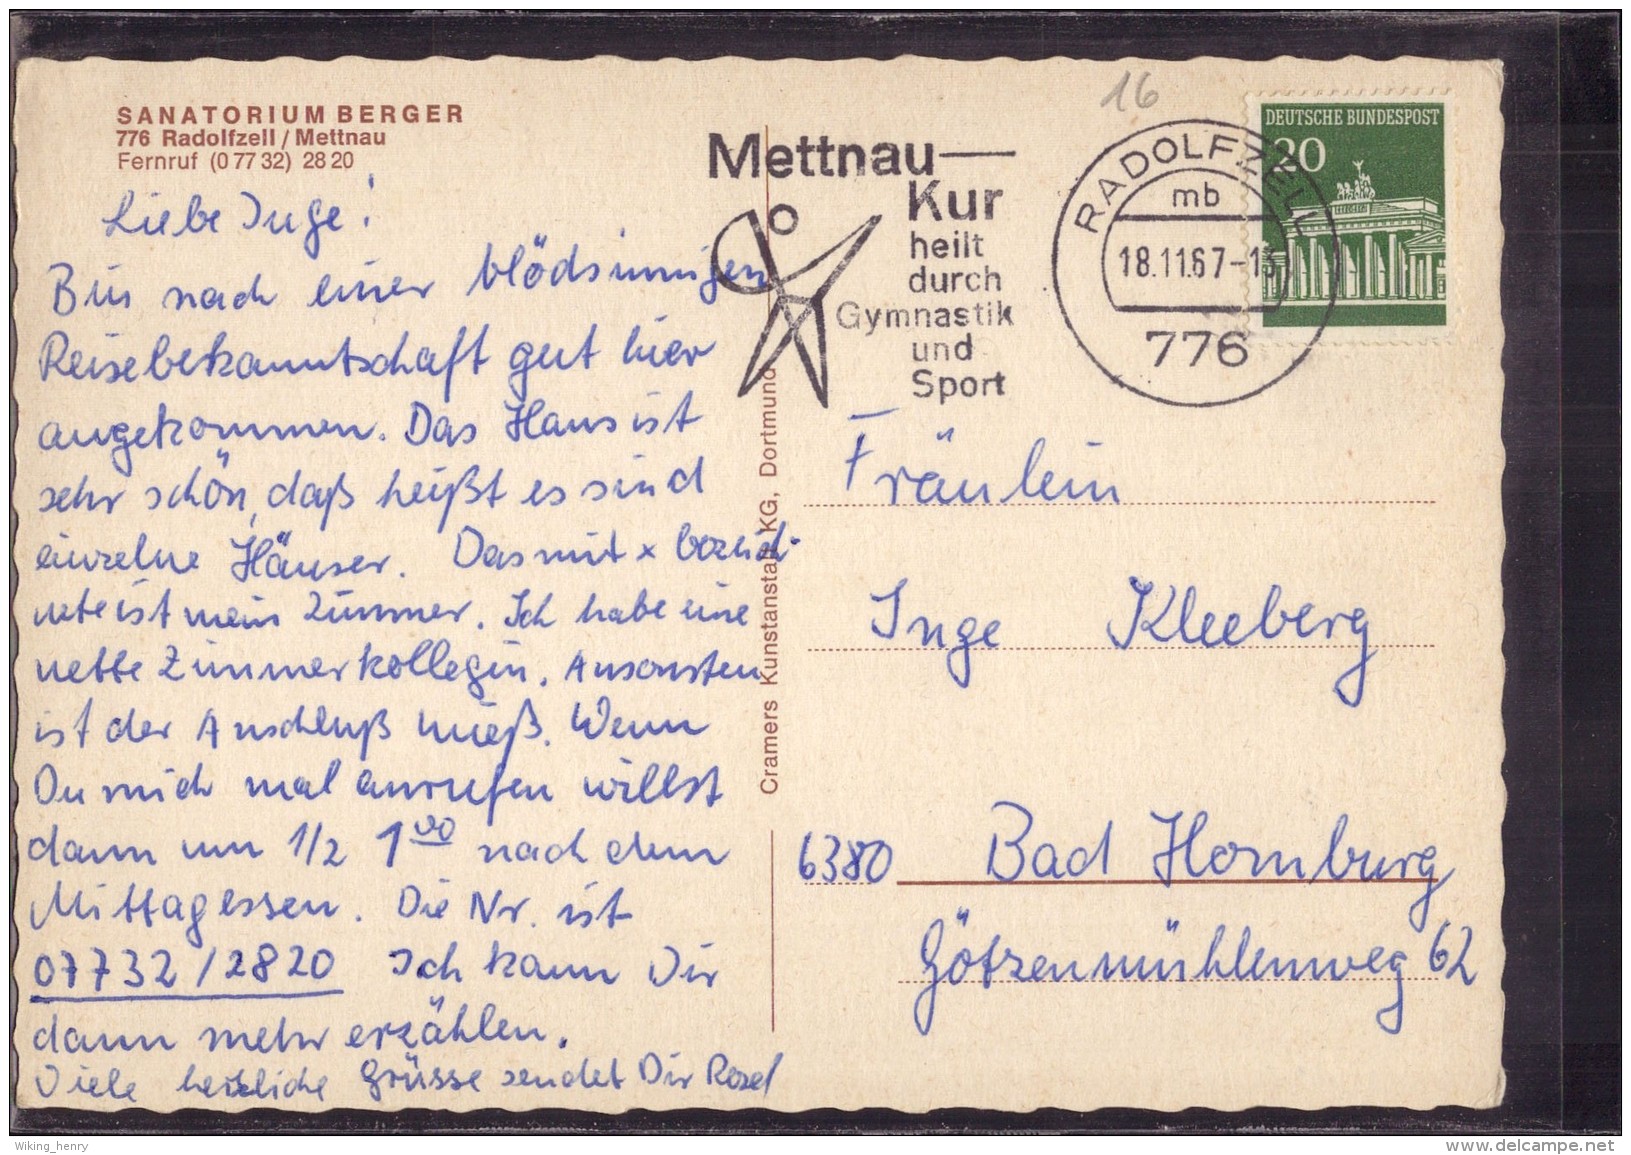 SANATORIUM BERGER
776 Radolfzell / Mettnau
Fernruf (0 77 32) 28 20
Liebe Inge!
Bin nach einer blödsinnigen
Reisebekanntschaft gut hier
angekommen. Das Haus ist
sehr schön, daß heißt es sind
einzelne Häuser. Das mit x bezeich-
nete ist mein Zimmer. Ich habe eine
nette Zimmerkollegin. Ansonsten
ist der Anschluß mieß. Wenn
Du mich mal anrufen willst
dann um 1/2 1 00 nach dem
Mittagessen. Die Nr. ist
07732/2820 Ich kann Dir
dann mehr erzählen.
Viele herzliche Grüsse sendet Dir Rosel
Cramers Kunstanstalt KG, Dortmund
16
Mettnau—
Kur
heilt
durch
Gymnastik
und
Sport
RADOLFZELL
mb
18.11.67-13
776
DEUTSCHE BUNDESPOST
20
Fräulein
Inge Kleeberg
6380 Bad Homburg
Götzenmühlenweg 62
Wiking_henry
www.delcampe.net